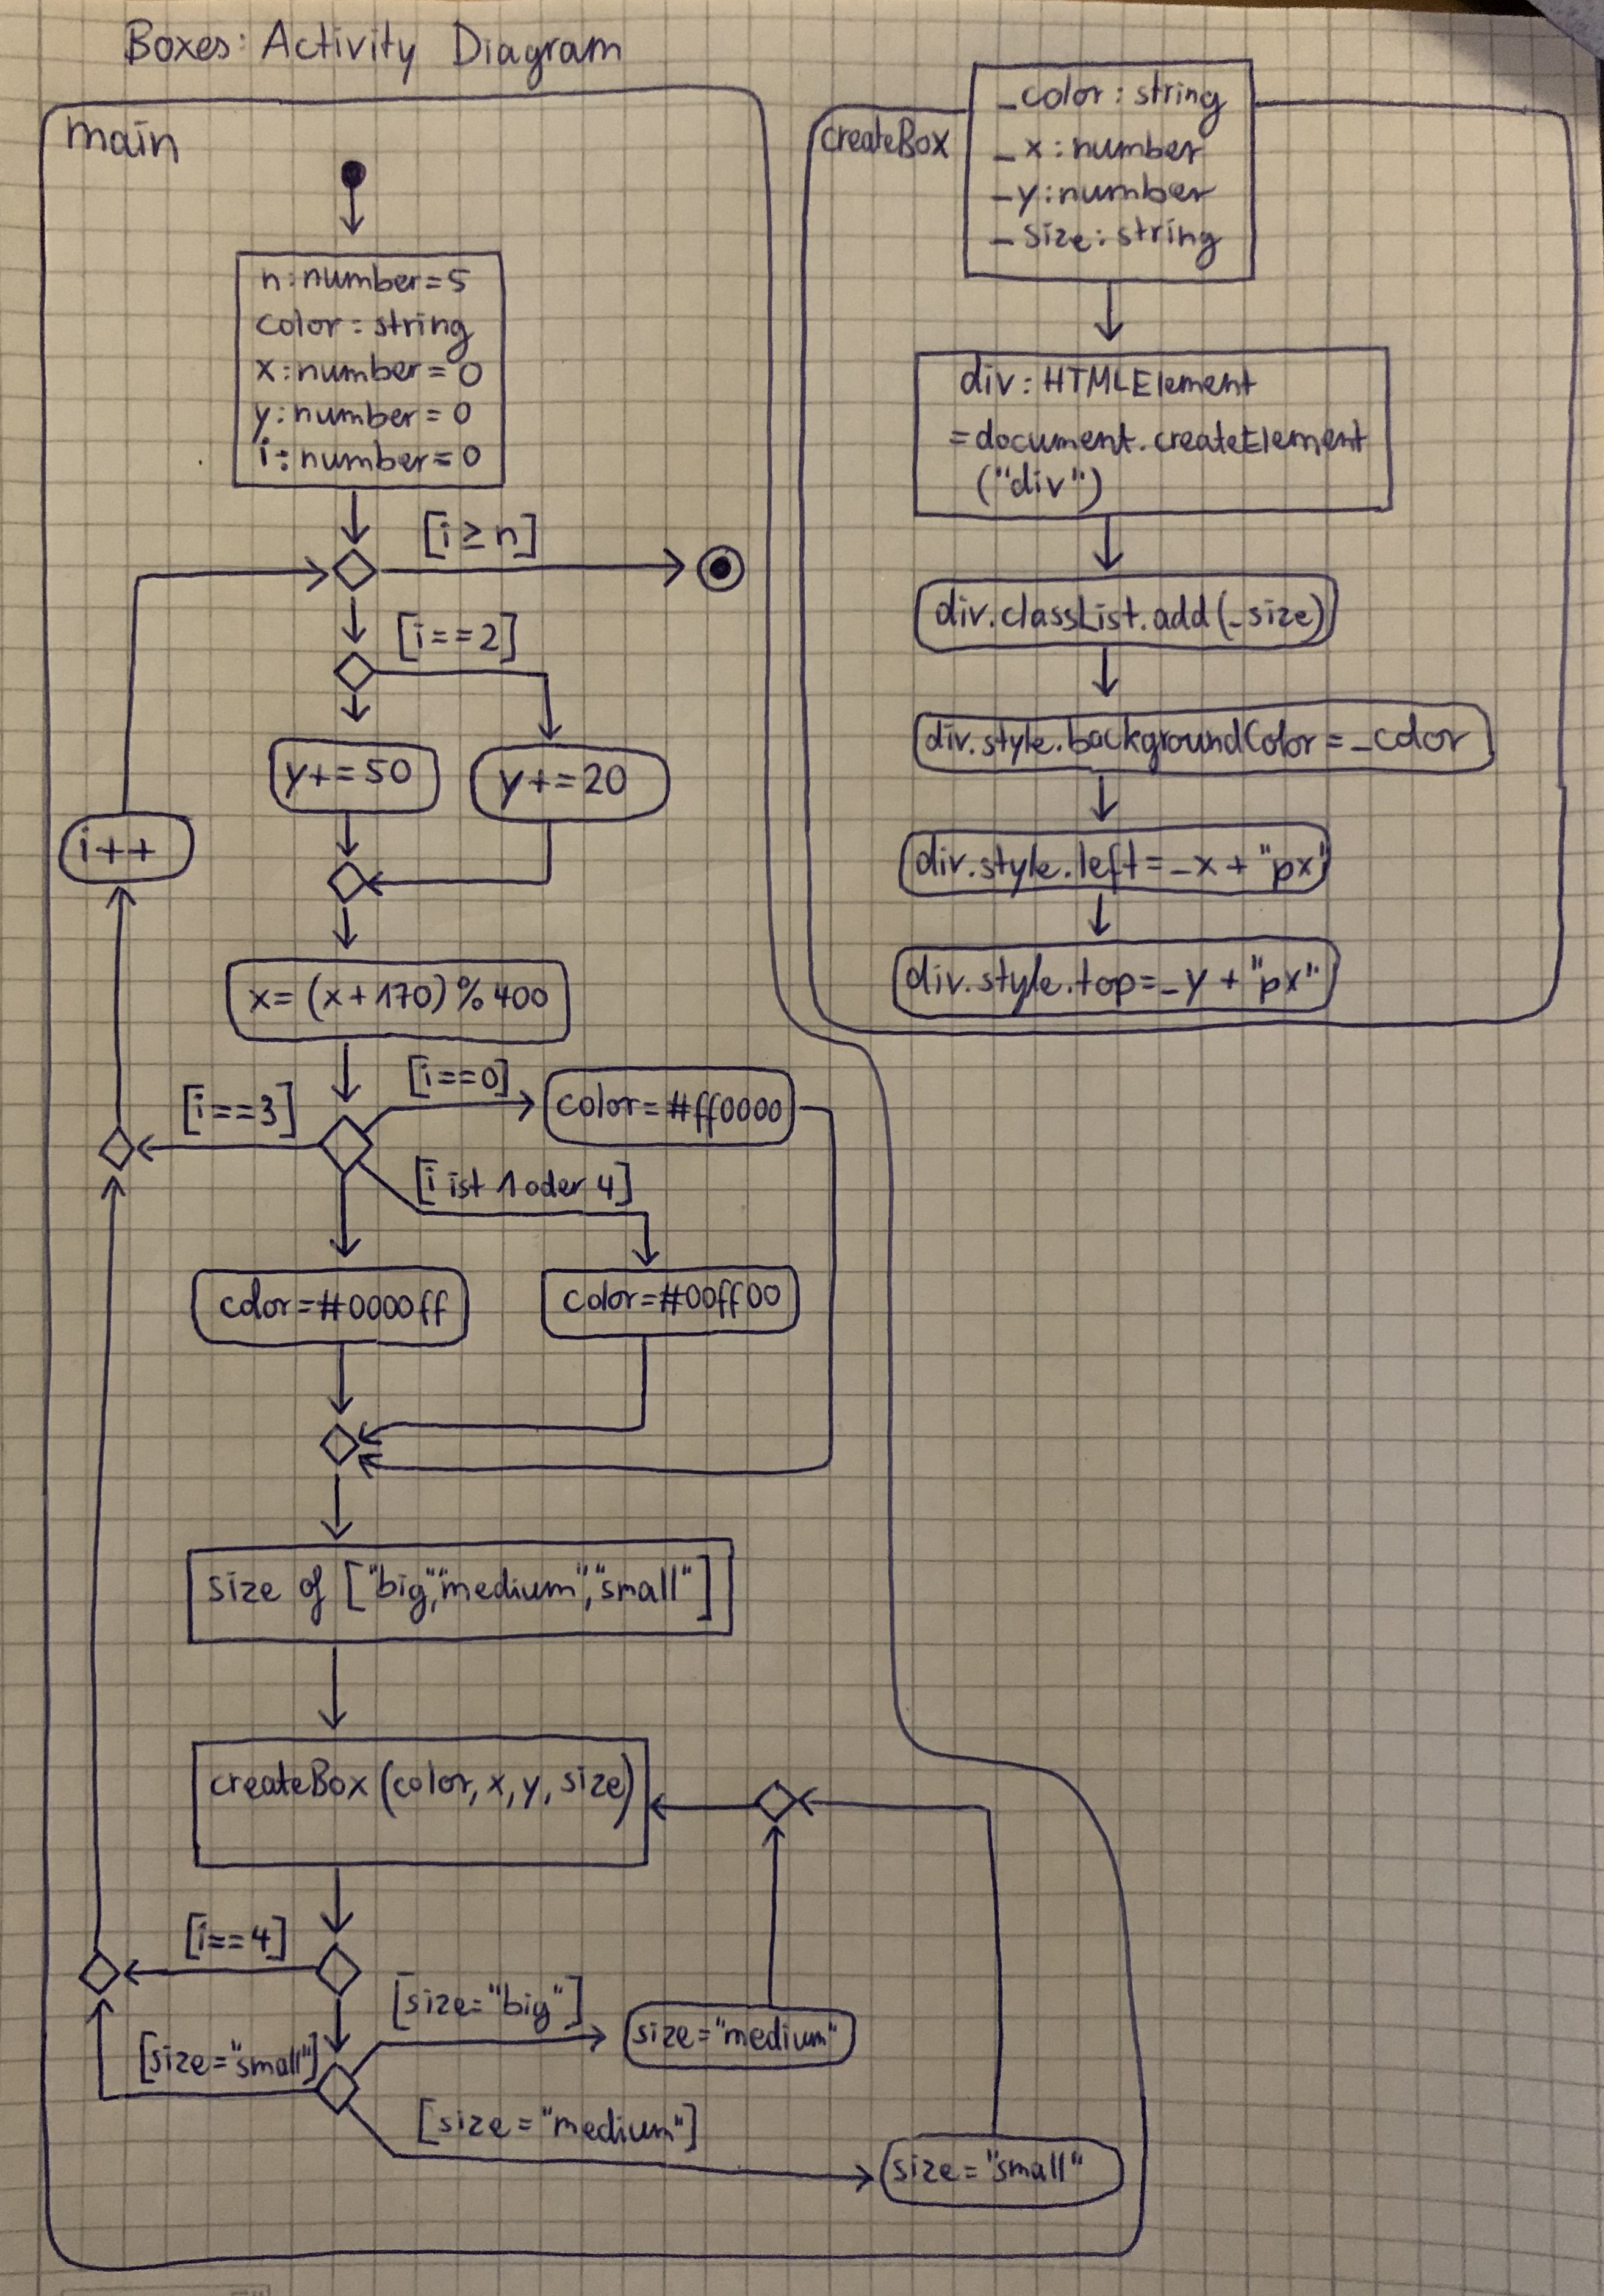 Boxes: Activity Diagram
main
n:number=5
color: string
x:number=0
y:number=0
i:number=0
[i≥n]
[i==2]
y+=50
y+=20
i++
x=(x+170)%400
[i==0]
color=#ff0000
[i==3]
[i ist 1 oder 4]
color=#0000ff
color=#00ff00
size of ["big","medium","small"]
createBox(color,x,y,size)
[i==4]
[size="big"]
size="medium"
[size="small"]
[size="medium"]
size="small"
createBox
_color: string
_x:number
_y:number
_size:string
div:HTMLElement
=document.createElement
("div")
div.classList.add(_size)
div.style.backgroundColor=_color
div.style.left=_x+"px"
div.style.top=_y+"px"